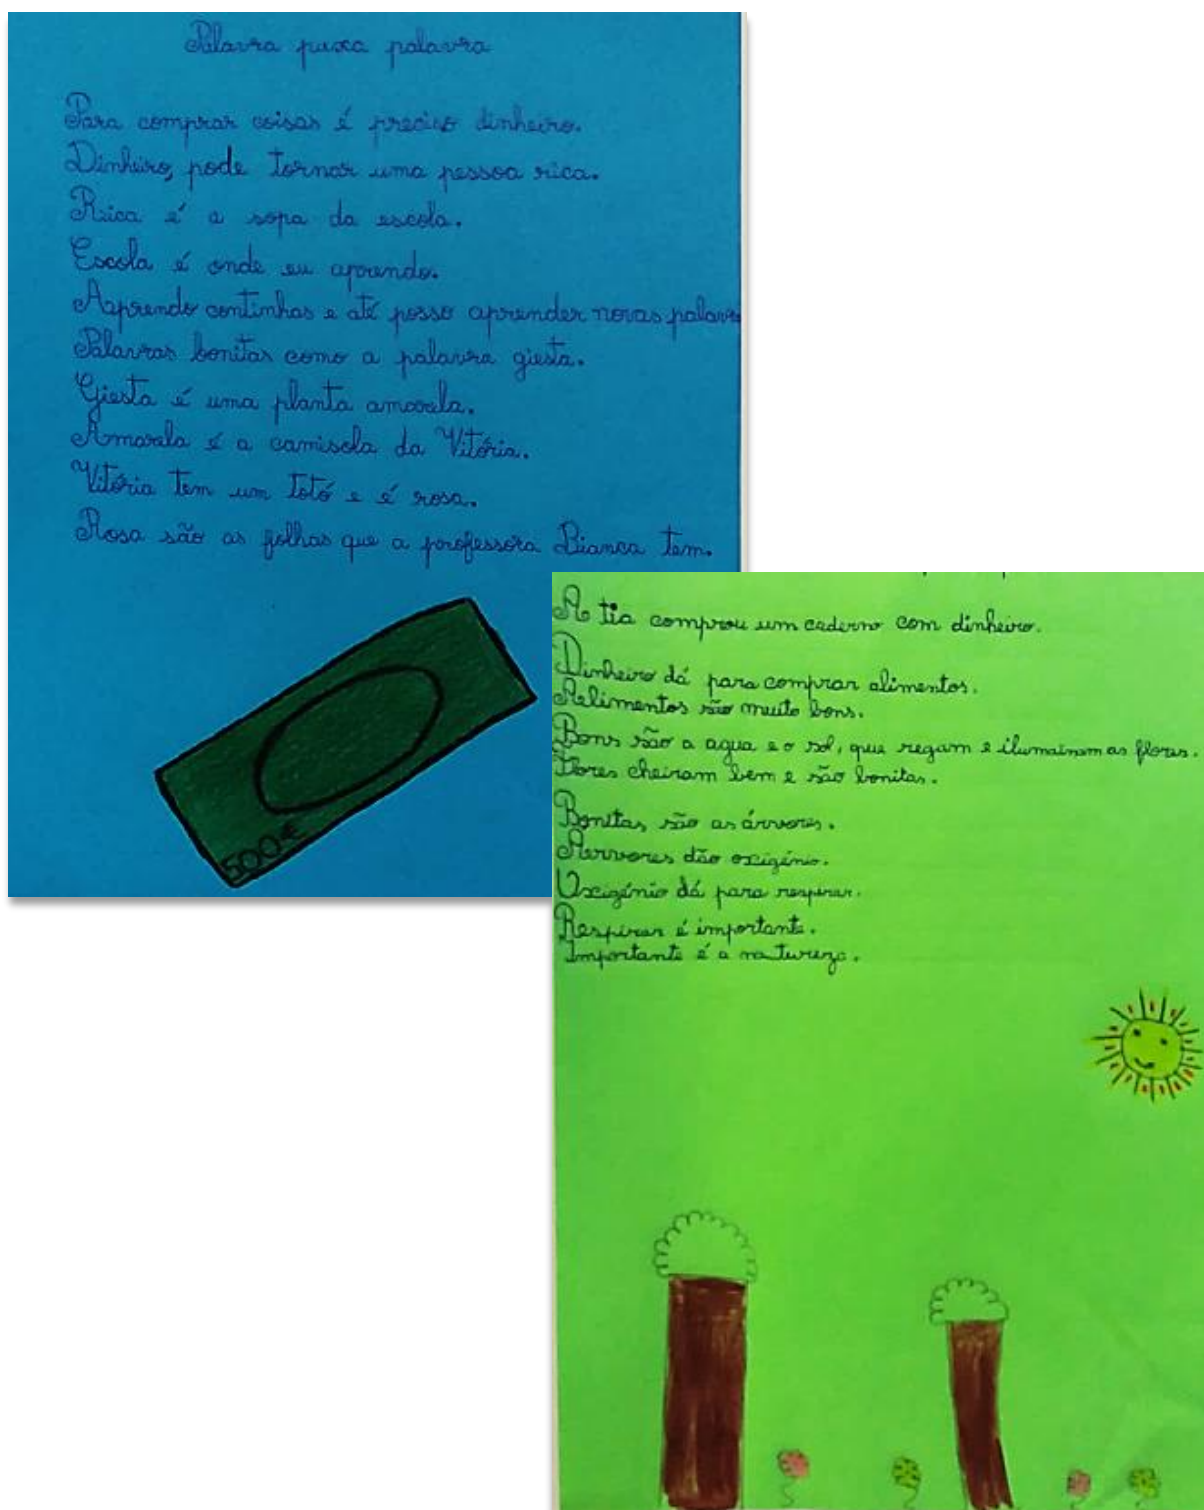 Palavra puxa palavra
Para comprar coisas é preciso dinheiro.
Dinheiro, pode tornar uma pessoa rica.
Rica é a sopa da escola.
Escola é onde eu aprendo.
Aprendo continhas e até posso aprender novas palavr
Palavras bonitas como a palavra giesta.
Giesta é uma planta amarela.
Amarela é a camisola da Vitória.
Vitória tem um totó e é rosa.
Rosa são as folhas que a professora Bianca tem.
500€
A tia comprou um caderno com dinheiro.
Dinheiro dá para comprar alimentos.
Alimentos são muito bons.
Bons são a agua e o sol, que regam e ilumainam as flores.
Flores cheiram bem e são bonitas.
Bonitas são as árvores.
Arvores dão oxigénio.
Oxigénio dá para respirar.
Respirar é importante.
Importante é a natureza.